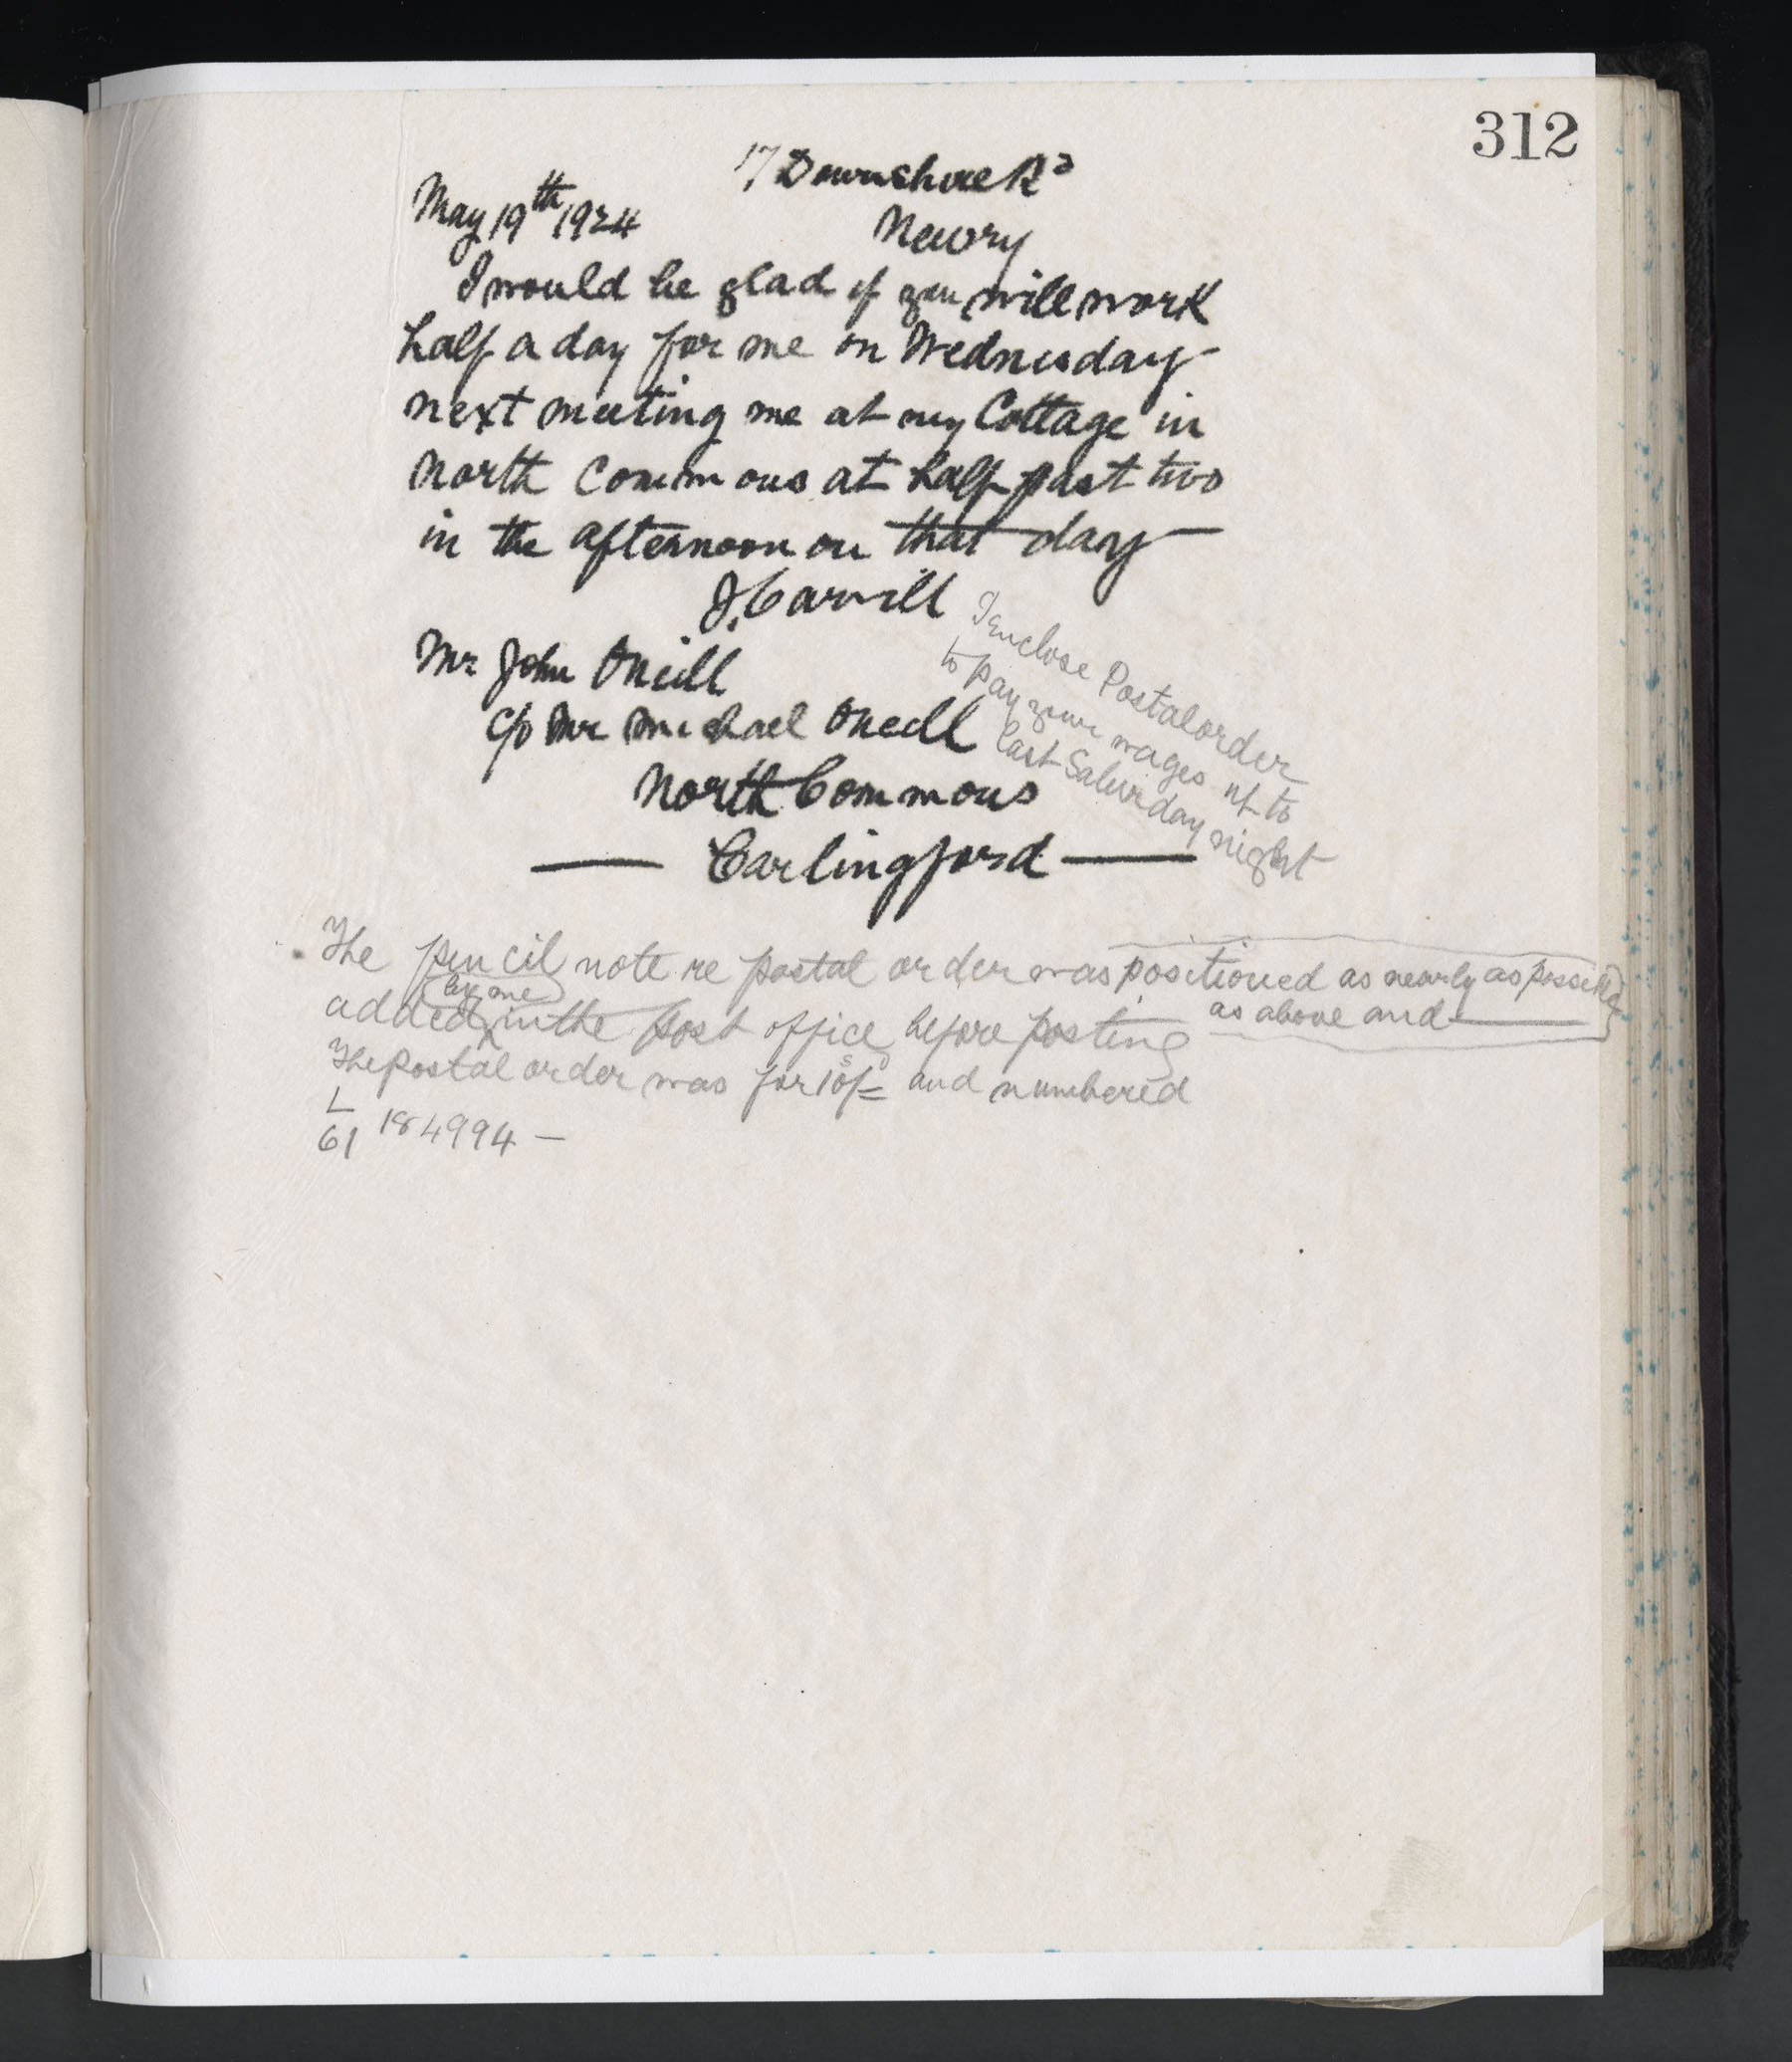 312
17 Downshire Rd
May 19th 1924
Newry
I would be glad if you will work
half a day for me on Wednesday
next meeting me at my Cottage in
North Commons at half past two
in the afternoon on that day
J. Carvill
I enclose Postal order
to pay your wages up to
last Saturday night
Mr John ONeill
c/o Mr Michael ONeill
North Commons
Carlingford
The pencil note re postal order was positioned as nearly as possible
as above and
added by me in the post office before posting
The postal order was for 10s/= and numbered
L
61 184994 —